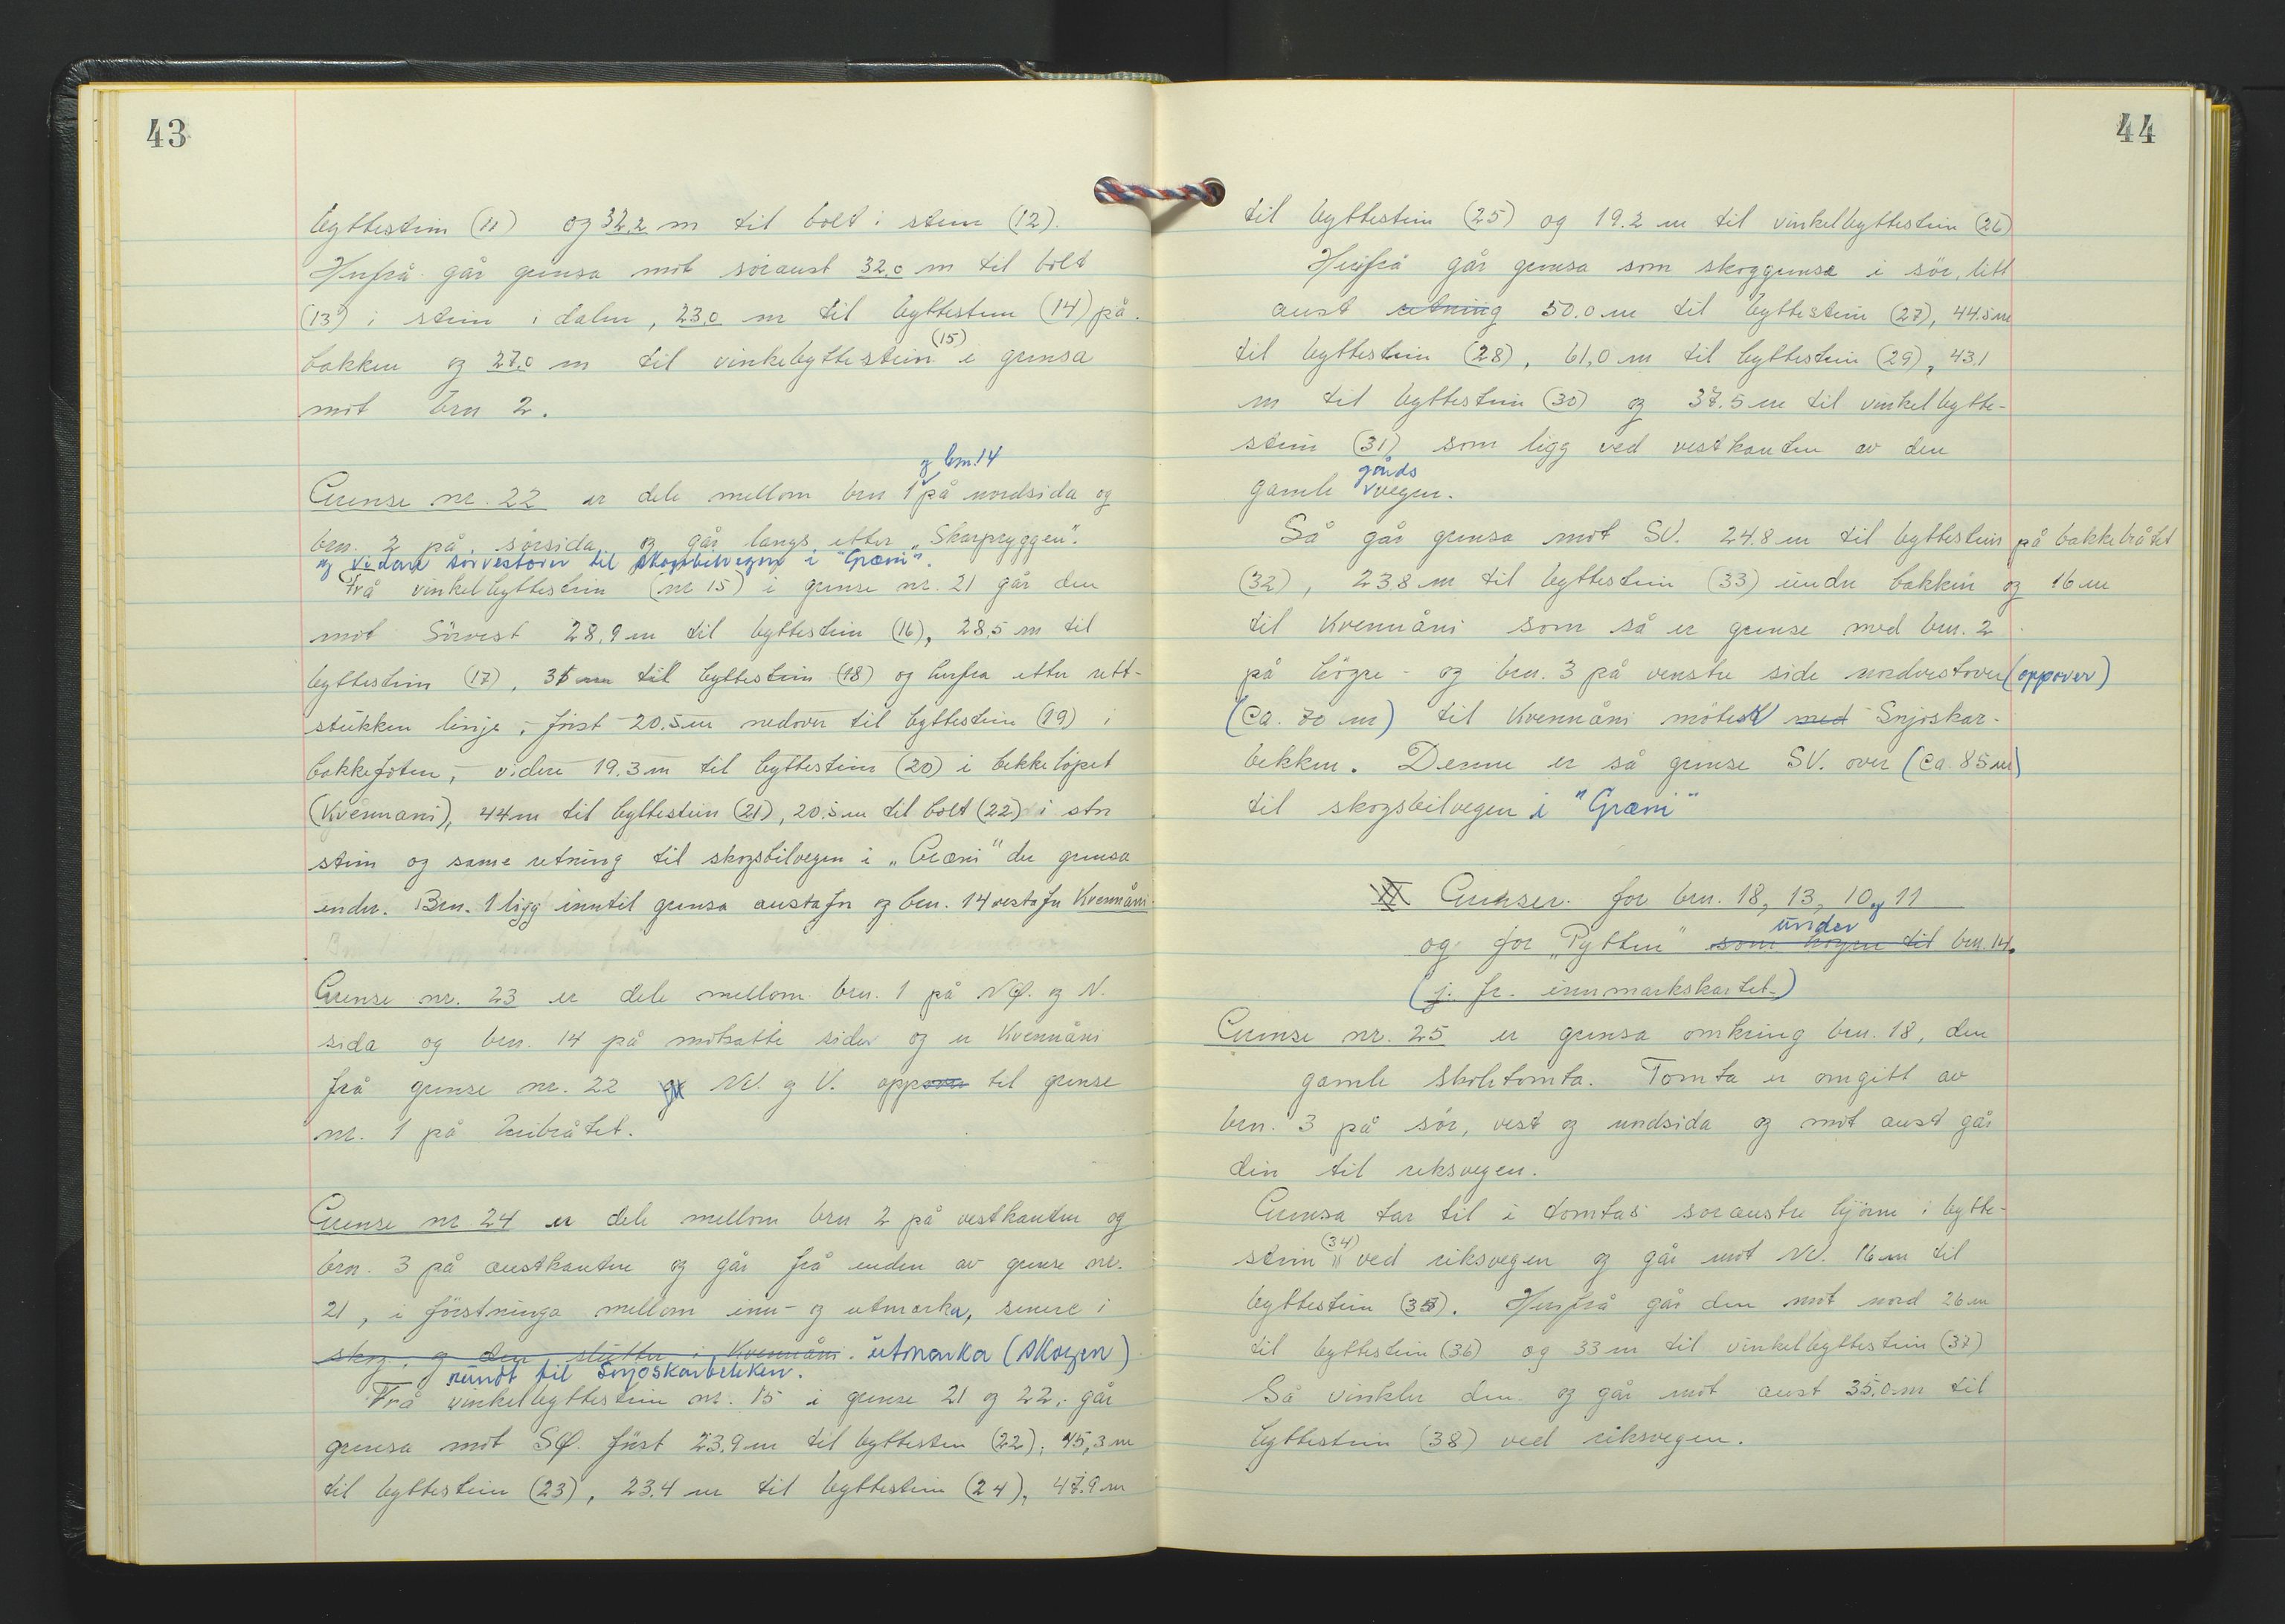 43
byttestein (11) og 32,2 m til bolt i stein (12).
Herfrå går grensa mot söraust 32,0 m til bolt
(13) i stein i dalen, 23,0 m til byttestein (14) på
bakken og 27,0 m til vinkelbyttestein (15) i grensa
mot brn 2.
og brn. 14
Grense nr. 22 er dele mellom brn 1 på nordsida og
brn. 2 på sörsida og går langs etter „Skarpryggen".
og vidare sørvestover til skogsbilvegen i "Græni".
Frå vinkelbyttestein (nr 15) i grense nr. 21 går den
mot Sörvest 28,9 m til byttestein (16), 28,5 m til
byttestein (17), 31 m til byttestein (18) og herfra etter rett-
stukken linje, - först 20.5 m nedover til byttestein (19) i
bakkefoten, - videre 19.3 m til byttestein (20) i bekkelöpet
(Kvennåni), 44 m til byttestein (21), 20.5 m til bolt (22) i stor
stein og same retning til skogsbilvegen i „Græni" der grensa
ender. Brn. 1 ligg inntil grensa austafor og brn. 14 vestafor Kvennåni.
Grense nr. 23 er dele mellom brn. 1 på NØ. og N.
sida og brn. 14 på motsatte sider og er Kvennåni
frå grense nr. 22 NV. og V. oppover til grense
nr. 1 på heibråtet.
Grense nr 24 er dele mellom brn 2 på vestkanten og
brn. 3 på austkanten og går frå enden av grense nr.
21, i förstninga mellom inn- og utmarka, senere i
skog, og den slutter i Kvennåni. utmarka (skogen)
rundt til Snjoskarbekken.
Frå vinkelbyttestein nr. 15 i grense 21 og 22, går
grensa mot SØ. först 23,9 m til byttestein (22), 45,3 m
til byttestein (23), 23.4 m til byttestein (24), 47.9 m
44
til byttestein (25) og 19.2 m til vinkelbyttestein (26)
Herifrå går grensa som skoggrense i sör, litt
aust retning 50.0 m til byttestein (27), 44.5 m
til byttestein (28), 61,0 m til byttestein (29), 43,1
m til byttestein (30) og 37.5 m til vinkelbytte-
stein (31) som ligg ved vestkanten av den
gards
gamle vegen.
Så går grensa mot SV. 24.8 m til byttestein på bakkebråtet
(32), 23.8 m til byttestein (33) under bakken og 16 m
til Kvennåni som så er grense med brn. 2
på högre - og brn. 3 på venstre side nordvestover (oppover)
(Ca. 70 m) til Kvennåni möter med Snjoskar-
bekken. Denne er så grense SV. over (Ca. 85 m)
til skogsbilvegen i "Græni"
VI Grenser for brn. 18, 13, 10 og 11
under
og for „Pytten" som høyrer til brn. 14.
(j. fr. innmarkskartet.)
Grense nr. 25 er grensa omkring brn. 18, den
gamle skoletomta. Tomta er omgitt av
brn. 3 på sör, vest og nordsida og mot aust går
den til riksvegen.
Grensa tar til i tomtas söraustre hjörne i bytte-
stein (34) ved riksvegen og går mot NV. 16 m til
byttestein (35). Herfrå går den mot nord 26 m
til byttestein (36) og 33 m til vinkelbyttestein (37)
Så vinkler den og går mot aust 35.0 m til
byttestein (38) ved riksvegen.